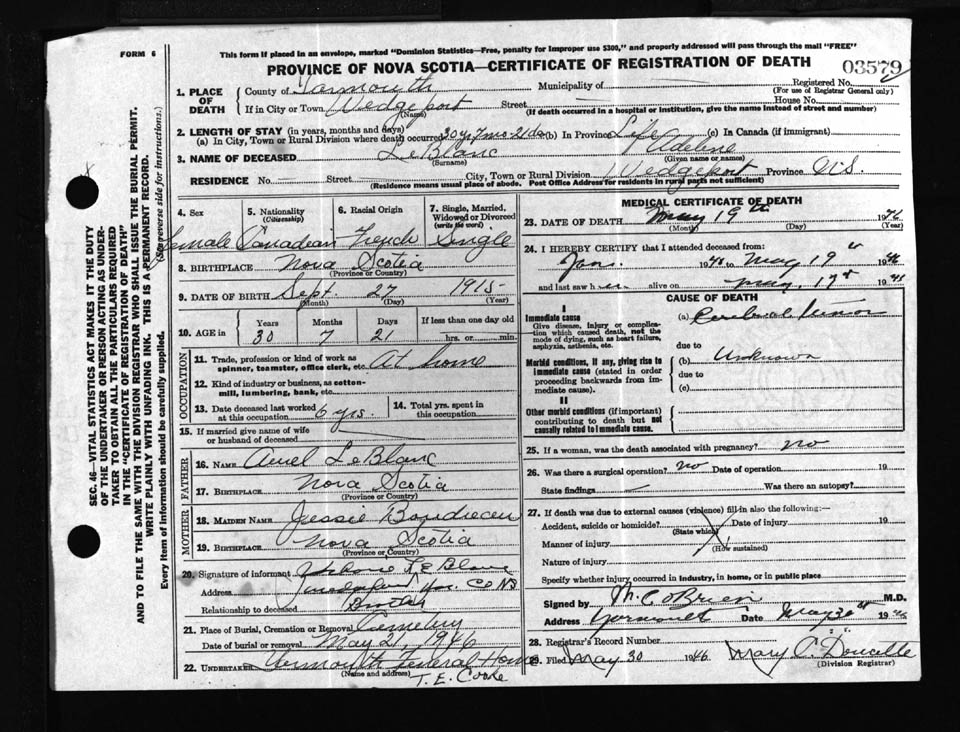 FORM 6
This form if placed in an envelope, marked "Dominion Statistics—Free, penalty for improper use $300," and properly addressed will pass through the mail "FREE"
PROVINCE OF NOVA SCOTIA—CERTIFICATE OF REGISTRATION OF DEATH
03579
1. PLACE OF DEATH
County of Yarmouth Municipality of Registered No.
(For use of Registrar General only)
If in City or Town Wedgeport Street House No.
(Name) (If death occurred in a hospital or institution, give the name instead of street and number)
2. LENGTH OF STAY (in years, months and days)
(a) In City, Town or Rural Division where death occurred 30 yr 7 mc 21 ds (b) In Province Life (c) In Canada (if immigrant)
3. NAME OF DECEASED LeBlanc Adelene
(Surname) (Given name or names)
RESIDENCE No. — Street City, Town or Rural Division Wedgeport Province N.S.
(Residence means usual place of abode. Post Office Address for residents in rural parts not sufficient)
4. Sex 5. Nationality (Citizenship) 6. Racial Origin 7. Single, Married, Widowed or Divorced (write the word)
Female Canadian French Single
8. BIRTHPLACE Nova Scotia
(Province or Country)
9. DATE OF BIRTH Sept. 27 1915
(Month) (Day) (Year)
10. AGE in Years Months Days If less than one day old
30 7 21 hrs. or min.
OCCUPATION
11. Trade, profession or kind of work as spinner, teamster, office clerk, etc. At home
12. Kind of industry or business, as cotton-mill, lumbering, bank, etc.
13. Date deceased last worked at this occupation 6 yrs.
14. Total yrs. spent in this occupation
15. If married give name of wife or husband of deceased
FATHER
16. NAME LeBlanc
17. BIRTHPLACE Nova Scotia
(Province or Country)
MOTHER
18. MAIDEN NAME Jessie Boudreau
19. BIRTHPLACE Nova Scotia
(Province or Country)
20. Signature of informant LeBlanc
Address
Relationship to deceased Brother
21. Place of Burial, Cremation or Removal Cemetery
Date of burial or removal May 21, 1946
22. UNDERTAKER Yarmouth Funeral Home
(Name and address)
T. E. Cooke
MEDICAL CERTIFICATE OF DEATH
23. DATE OF DEATH May 19th 1946
(Month) (Day) (Year)
24. I HEREBY CERTIFY that I attended deceased from:
Jan. 1940 to May 19" 1946
and last saw her alive on May 17th 1946
CAUSE OF DEATH
I
Immediate cause
Give disease, injury or complication which caused death, not the mode of dying, such as heart failure, asphyxia, asthenia, etc.
(a) Cerebral
due to
Morbid conditions, if any, giving rise to immediate cause (stated in order proceeding backwards from immediate cause).
(b) Unknown
due to
(c)
II
Other morbid conditions (if important) contributing to death but not causally related to immediate cause.
25. If a woman, was the death associated with pregnancy? no
26. Was there a surgical operation? no Date of operation 19
State findings — Was there an autopsy?
27. If death was due to external causes (violence) fill in also the following:—
Accident, suicide or homicide? Date of injury 19
(State which)
Manner of injury
(How sustained)
Nature of injury
Specify whether injury occurred in industry, in home, or in public place
Signed by M. C. O'Brien M.D.
Address Yarmouth Date May 30th 1946
28. Registrar's Record Number
29. Filed May 30 1946 Mary C. Doucette
(Division Registrar)
SEC. 46—VITAL STATISTICS ACT MAKES IT THE DUTY
OF THE UNDERTAKER OR PERSON ACTING AS UNDER-
TAKER TO OBTAIN ALL THE PARTICULARS REQUIRED
IN THE "CERTIFICATE OF REGISTRATION OF DEATH"
AND TO FILE THE SAME WITH THE DIVISION REGISTRAR WHO SHALL ISSUE THE BURIAL PERMIT.
WRITE PLAINLY WITH UNFADING INK. THIS IS A PERMANENT RECORD.
Every item of information should be carefully supplied.
(See reverse side for instructions.)